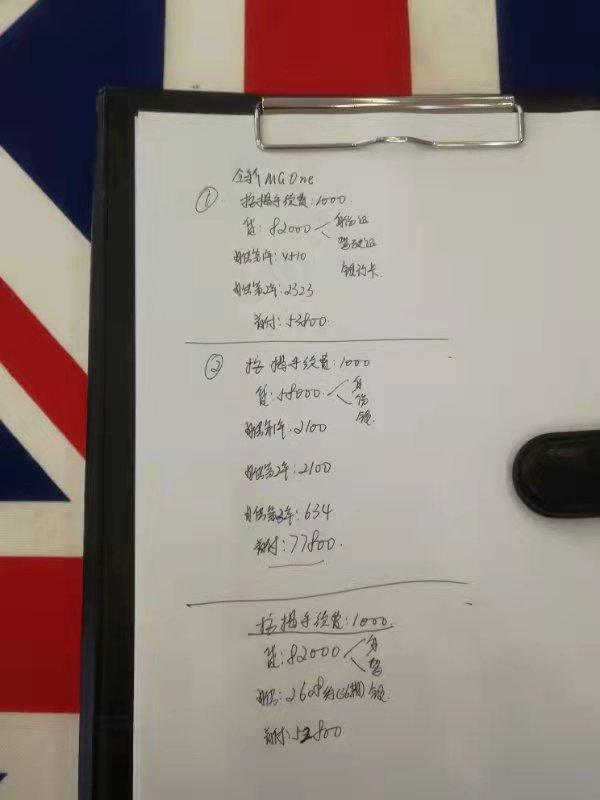 全新MG One
① 按揭手续费:1000.
贷:82000 身份证
驾驶证
银行卡.
月供第1年:4510
月供第2年:2323
首付:53800.
② 按揭手续费:1000
贷:58000 身
份
银.
月供第1年:2100
月供第2年:2100
月供第3年:634
首付:77800.
按揭手续费:1000.
贷:82000 身
驾
月供:2628 (36期) 银.
首付:53800